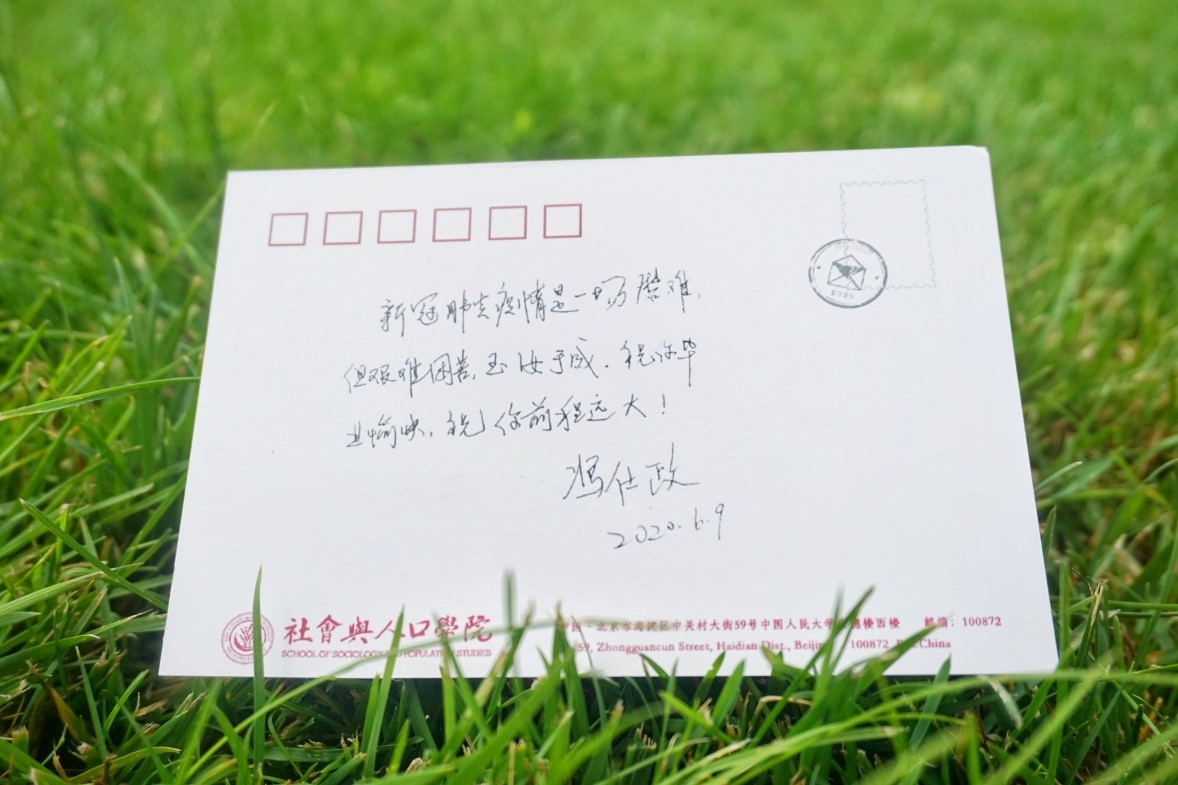 2020
新冠肺炎疫情是一场磨难,
但艰难困苦,玉汝于成.祝你毕
业愉快,祝你前程远大!
冯仕政
2020.6.9
社會與人口學院
SCHOOL OF SOCIOLOGY AND POPULATION STUDIES
北京市海淀区中关村大街59号中国人民大学 樓西楼 邮编:100872
59, Zhongguancun Street, Haidian Dist., Beijing 100872 China